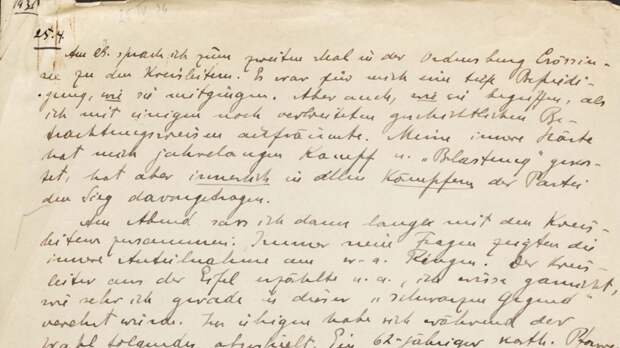 1936
25.4.
Am 23. sprach ich zum zweiten Mal in der Ordensburg Crössin-
see zu den Kreisleitern. Es war für mich eine tiefe Befriedi-
gung, wie sie mitgingen. Aber auch, wie sie begriffen, als
ich mit einigen noch verbreiteten geschichtlichen Be-
trachtungsweisen aufräumte. Meine innere Härte
hat mich jahrelangen Kampf u. „Belastung" gekos-
tet, hat aber innerlich in allen Kämpfern der Partei
den Sieg davongetragen.
Am Abend sass ich dann lange mit den Kreis-
leitern zusammen. Immer neue Fragen zeigten die
innere Anteilnahme am w-a. Ringen. Der Kreis-
leiter aus der Eifel erzählte u. a., ich wisse garnicht,
wie sehr ich gerade in dieser „schwarzen Gegend"
verehrt würde. Im übrigen habe sich während der
Wahl folgendes abgespielt. Ein 62-jähriger kath.